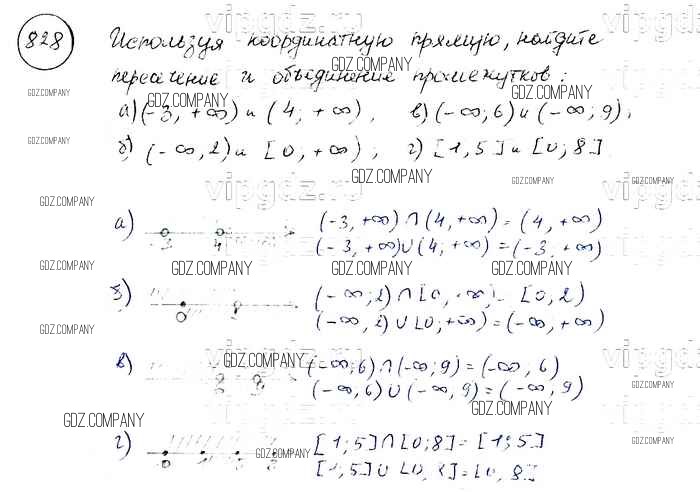 828
Используя координатную прямую, найдите
пересечение и объединение промежутков:
а) (-3, +∞) и (4, +∞), в) (-∞; 6) и (-∞; 9),
б) (-∞, 2) и [0, +∞); г) [1, 5] и [0; 8].
а) -3 4 (-3, +∞) ∩ (4, +∞) = (4, +∞)
(-3, +∞) ∪ (4, +∞) = (-3, +∞)
б) 0 2 (-∞; 2) ∩ [0, +∞) = [0, 2)
(-∞, 2) ∪ [0, +∞) = (-∞, +∞)
в) 6 9 (-∞; 6) ∩ (-∞; 9) = (-∞, 6)
(-∞, 6) ∪ (-∞, 9) = (-∞, 9)
г) 0 1 5 8 [1; 5] ∩ [0; 8] = [1; 5]
[1, 5] ∪ [0, 8] = [0, 8]
GDZ.COMPANY
vipgdz.ru